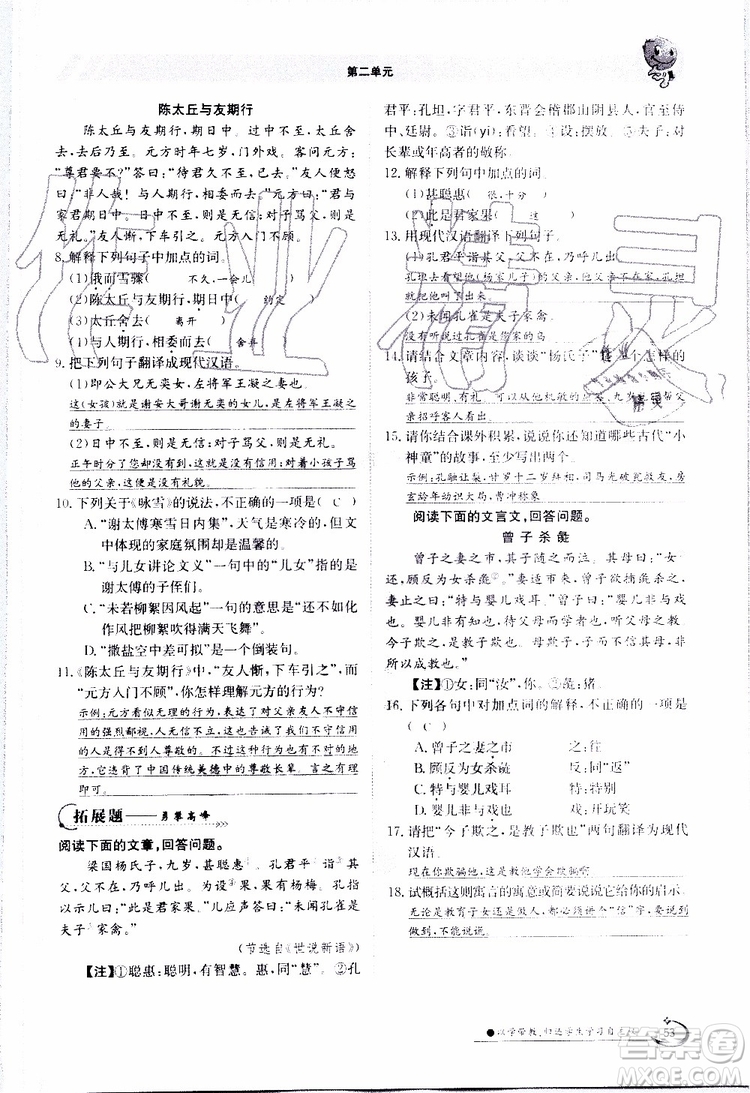 第二单元
陈太丘与友期行
陈太丘与友期行，期日中。过中不至，太丘舍
去，去后乃至。元方时年七岁，门外戏。客问元方：
“尊君在不？”答曰：“待君久不至，已去。”友人便怒
曰：“非人哉！与人期行，相委而去！”元方曰：“君与
家君期日中。日中不至，则是无信；对子骂父，则是
无礼。”友人惭，下车引之。元方入门不顾。
8. 解释下列句子中加点的词。
(1)俄而雪骤（ 不久，一会儿 ）
(2)陈太丘与友期行，期日中（ 约定 ）
(3)太丘舍去（ 离开 ）
(4)与人期行，相委而去（ 舍弃 ）
9. 把下列句子翻译成现代汉语。
(1)即公大兄无奕女，左将军王凝之妻也。
这(女孩)就是谢安大哥谢无奕的女儿，左将军王凝之
的妻子。
(2)日中不至，则是无信；对子骂父，则是无礼。
正午时分了您都没有到，这就是没有信用；对孩子骂他
的父亲，这就是没有礼貌。
10. 下列关于《咏雪》的说法，不正确的一项是（ C ）
A. “谢太傅寒雪日内集”，天气是寒冷的，但文
中体现的家庭氛围却是温馨的。
B. “与儿女讲论文义”一句中的“儿女”指的是
谢太傅的子侄们。
C. “未若柳絮因风起”一句的意思是“还不如化
作风把柳絮吹得满天飞舞”。
D. “撒盐空中差可拟”是一个倒装句。
11. 《陈太丘与友期行》中，“友人惭，下车引之”，而
“元方入门不顾”，你怎样理解元方的行为？
示例：元方看似无理的行为，表达了对父亲友人不守信用
的强烈鄙视，人无信不立，对不讲信用，不讲文明礼貌的
人是得不到别人尊敬的。不过这种行为也有不对的地
方，应该考虑到中国传统美德中的尊敬长辈。言之有理
即可。
拓展题——勇攀高峰
阅读下面的文章，回答问题。
梁国杨氏子，九岁，甚聪惠①。孔君平②诣③其
父，父不在，乃呼儿出。为设④果，果有杨梅。孔指
以示儿曰：“此是君家果。”儿应声答曰：“未闻孔雀是
夫子⑤家禽。”
(节选自《世说新语》)
【注】①聪惠：聪明，有智慧。惠，同“慧”。②孔
君平：孔坦，字君平，东晋会稽郡山阴县人，官至侍
中、廷尉。③诣(yì)：看望。④设：摆放。⑤夫子：对
长辈或年高者的敬称。
12. 解释下列句中加点的词。
(1)甚聪惠（ 很，十分 ）
(2)此是君家果（ 这 ）
13. 用现代汉语翻译下列句子。
(1)孔君平诣其父，父不在，乃呼儿出
孔坦去看望他(杨家儿子)的父亲，他父亲不在，
(2)未闻孔雀是夫子家禽。
没听说过孔雀是您家的鸟
14. 请结合文章内容，谈谈“杨氏子”是一个怎样的
孩子。
父亲招呼客人出来
15. 请你结合课外积累，说说你还知道哪些古代“小
神童”的故事，至少写出两个。
示例：孔融让梨，甘罗十二岁拜相，司马光砸缸救友，房
玄龄年幼识大局，曹冲称象
阅读下面的文言文，回答问题。
曾子杀彘
曾子之妻之市，其子随之而泣。其母曰：“女
还，顾反为女杀彘②。”妻适市来，曾子欲捕彘杀之，
妻止之曰：“特与婴儿戏耳。”曾子曰：“婴儿非与戏
也。婴儿非有知也，待父母而学者也，听父母之教
今子欺之，是教子欺也。母欺子，子而不信其母，
所以成教也。”
【注】①女：同“汝”，你。②彘：猪。
16. 下列各句中对加点词的解释，不正确的一项是
（ C ）
A. 曾子之妻之市 之：往
B. 顾反为女杀彘 反：同“返”
C. 特与婴儿戏耳 特：特别
D. 婴儿非与戏也 戏：开玩笑
17. 请把“今子欺之，是教子欺也”两句翻译为现代
汉语。
现在你欺骗他，这是教孩子骗人啊。
18. 试概括这则寓言的寓意或简要说说它给你的启示。
无论是教育子女还是做人，都必须讲个“信”字，要说到
做到，不能说谎。
●以学带教，打造学生学习自主
53
答案圈
MXQE.COM